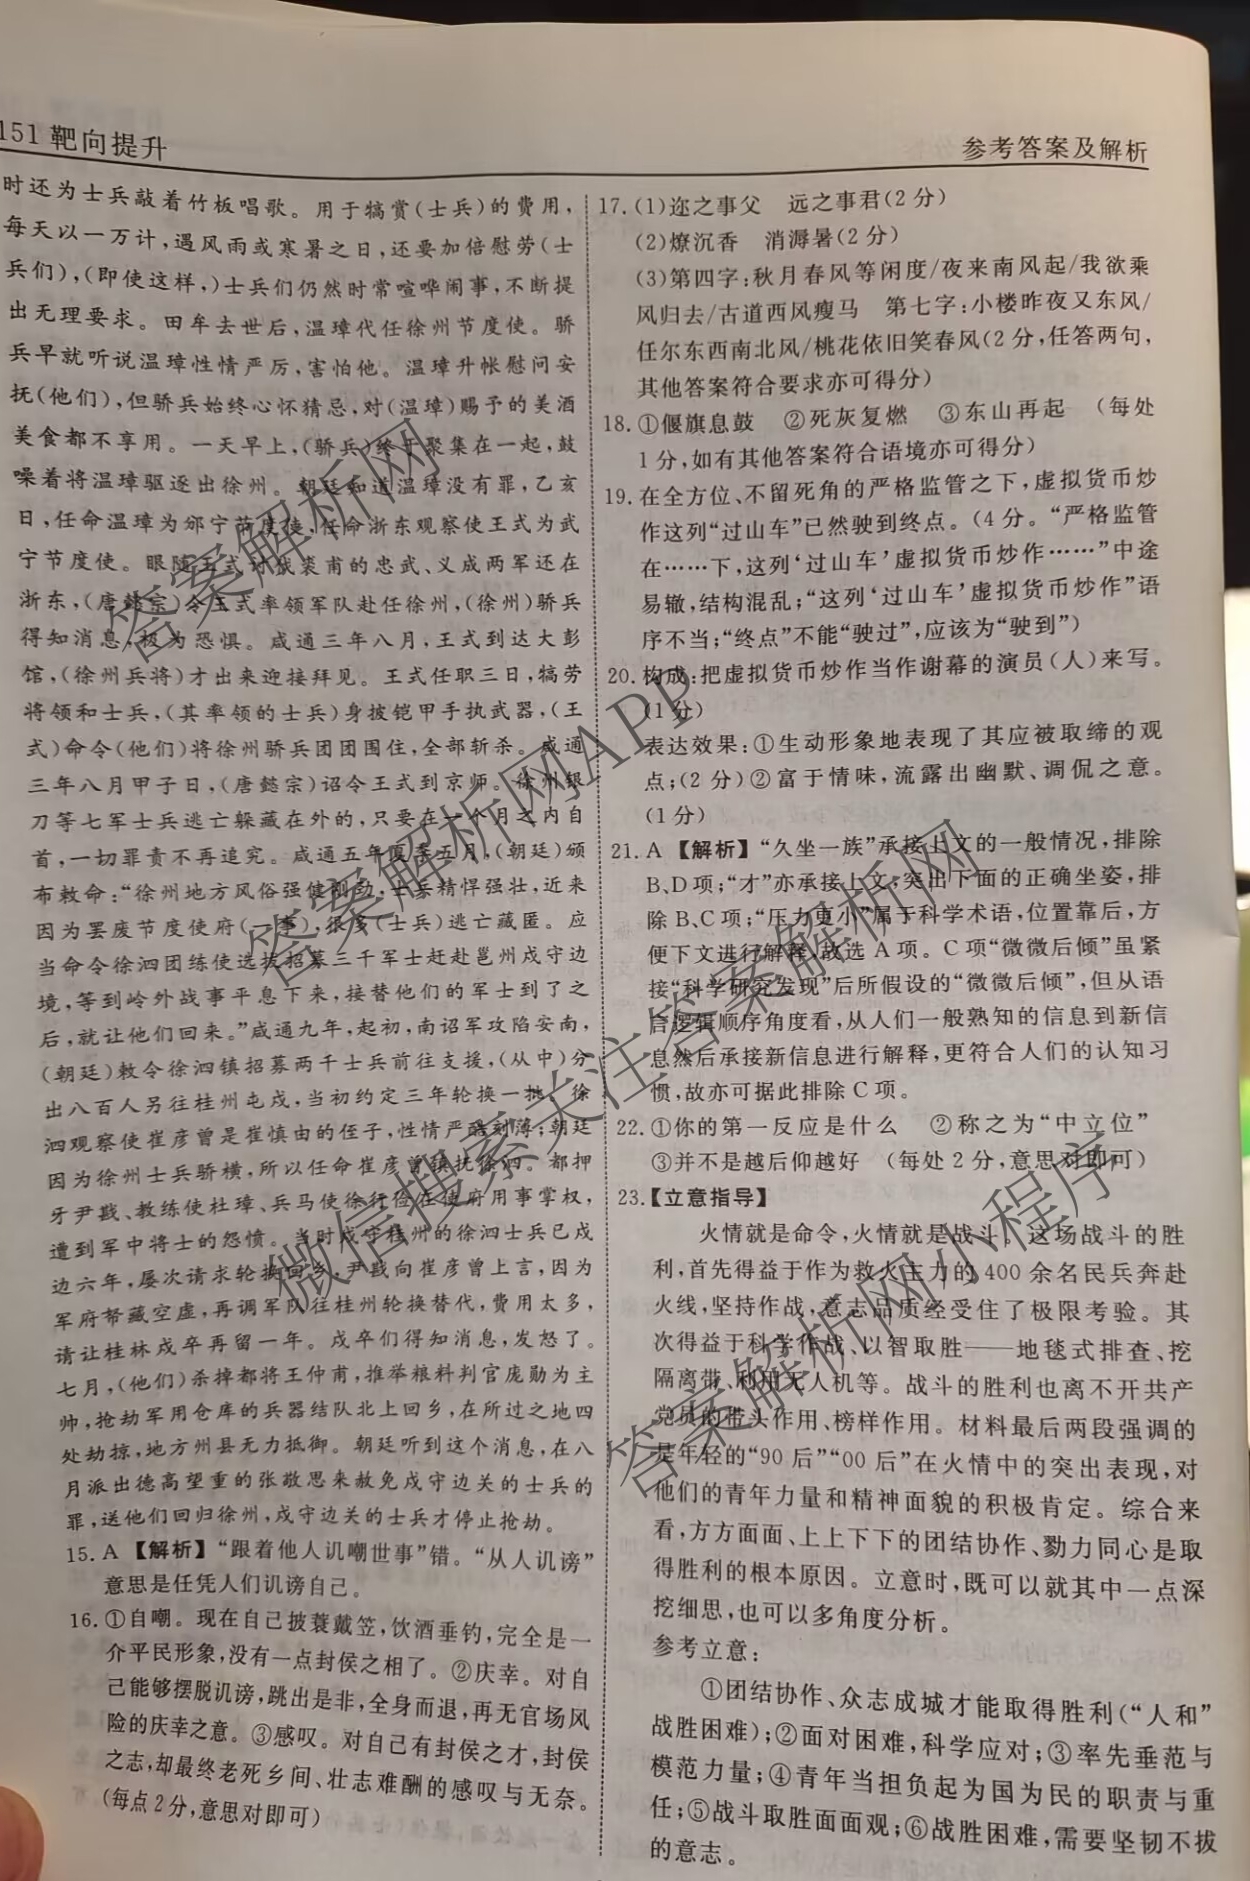 151 靶向提升
参考答案及解析
时还为士兵敲着竹板唱歌。用于犒赏(士兵)的费用,
每天以一万计,遇风雨或寒暑之日,还要加倍慰劳(士
兵们),(即使这样,)士兵们仍然时常喧哗闹事,不断提
出无理要求。田牟去世后,温璋代任徐州节度使。骄
兵早就听说温璋性情严厉,害怕他。温璋升帐慰问安
抚(他们),但骄兵始终心怀猜忌,对(温璋)赐予的美酒
美食都不享用。一天早上,(骄兵)终于聚集在一起,鼓
噪着将温璋驱逐出徐州。朝廷知道温璋没有罪,乙亥
日,任命温璋为邠宁节度使,任命浙东观察使王式为武
宁节度使。眼随王式讨伐裘甫的忠武、义成两军还在
浙东,(唐懿宗)令王式率领军队赴任徐州,(徐州)骄兵
得知消息,极为恐惧。咸通三年八月,王式到达大彭
馆,(徐州兵将)才出来迎接拜见。王式任职三日,犒劳
将领和士兵,(其率领的士兵)身披铠甲手执武器,(王
式)命令(他们)将徐州骄兵团团围住,全部斩杀。咸通
三年八月甲子日,(唐懿宗)诏令王式到京师。徐州银
刀等七军士兵逃亡躲藏在外的,只要在一个月之内自
首,一切罪责不再追究。咸通五年夏季五月,(朝廷)颁
布敕命:“徐州地方风俗强健刚劲,士兵精悍强壮,近来
因为罢废节度使府(一事),很多(士兵)逃亡藏匿。应
当命令徐泗团练使选拔招募三千军士赶赴邕州戍守边
境,等到岭外战事平息下来,接替他们的军士到了之
后,就让他们回来。”咸通九年,起初,南诏军攻陷安南,
(朝廷)敕令徐泗镇招募两千士兵前往支援,(从中)分
出八百人另往桂州屯戍,当初约定三年轮换一批。徐
泗观察使崔彦曾是崔慎由的侄子,性情严酷刻薄;朝廷
因为徐州士兵骄横,所以任命崔彦曾镇抚徐泗。都押
牙尹戡、教练使杜璋、兵马使徐行俭在使府用事掌权,
遭到军中将士的怨愤。当时戍守桂州的徐泗士兵已戍
边六年,屡次请求轮换回乡,尹戡向崔彦曾上言,因为
军府帑藏空虚,再调军队往桂州轮换替代,费用太多,
请让桂林戍卒再留一年。戍卒们得知消息,发怒了。
七月,(他们)杀掉都将王仲甫,推举粮料判官庞勋为主
帅,抢劫军用仓库的兵器结队北上回乡,在所过之地四
处劫掠,地方州县无力抵御。朝廷听到这个消息,在八
月派出德高望重的张敬思来赦免戍守边关的士兵的
罪,送他们回归徐州,戍守边关的士兵才停止抢劫。
15. A 【解析】“跟着他人讥嘲世事”错。“从人讥谤”
意思是任凭人们讥谤自己。
16. ①自嘲。现在自己披蓑戴笠,饮酒垂钓,完全是一
介平民形象,没有一点封侯之相了。②庆幸。对自
己能够摆脱讥谤,跳出是非,全身而退,再无官场风
险的庆幸之意。③感叹。对自己有封侯之才,封侯
之志,却最终老死乡间、壮志难酬的感叹与无奈。
(每点2分,意思对即可)
17. (1)迩之事父 远之事君(2分)
(2)燎沉香 消溽暑(2分)
(3)第四字:秋月春风等闲度/夜来南风起/我欲乘
风归去/古道西风瘦马 第七字:小楼昨夜又东风/
任尔东西南北风/桃花依旧笑春风(2分,任答两句,
其他答案符合要求亦可得分)
18. ①偃旗息鼓 ②死灰复燃 ③东山再起 (每处
1分,如有其他答案符合语境亦可得分)
19. 在全方位、不留死角的严格监管之下,虚拟货币炒
作这列“过山车”已然驶到终点。(4分。“严格监管
在……下,这列‘过山车’虚拟货币炒作……”中途
易辙,结构混乱;“这列‘过山车’虚拟货币炒作”语
序不当;“终点”不能“驶过”,应该为“驶到”)
20. 构成:把虚拟货币炒作当作谢幕的演员(人)来写。
(1分)
表达效果:①生动形象地表现了其应被取缔的观
点;(2分)②富于情味,流露出幽默、调侃之意。
(1分)
21. A 【解析】“久坐一族”承接上文的一般情况,排除
B、D项;“才”亦承接上文,突出下面的正确坐姿,排
除B、C项;“压力更小”属于科学术语,位置靠后,方
便下文进行解释,故选A项。C项“微微后倾”虽紧
接“科学研究发现”后所假设的“微微后倾”,但从语
言逻辑顺序角度看,从人们一般熟知的信息到新信
息然后承接新信息进行解释,更符合人们的认知习
惯,故亦可据此排除C项。
22. ①你的第一反应是什么 ②称之为“中立位”
③并不是越后仰越好 (每处2分,意思对即可)
23. 【立意指导】
火情就是命令,火情就是战斗。这场战斗的胜
利,首先得益于作为救火主力的400余名民兵奔赴
火线,坚持作战,意志品质经受住了极限考验。其
次得益于科学作战、以智取胜——地毯式排查、挖
隔离带、利用无人机等。战斗的胜利也离不开共产
党员的带头作用、榜样作用。材料最后两段强调的
是年轻的“90后”“00后”在火情中的突出表现,对
他们的青年力量和精神面貌的积极肯定。综合来
看,方方面面、上上下下的团结协作、勠力同心是取
得胜利的根本原因。立意时,既可以就其中一点深
挖细思,也可以多角度分析。
参考立意:
①团结协作、众志成城才能取得胜利(“人和”
战胜困难);②面对困难,科学应对;③率先垂范与
模范力量;④青年当担负起为国为民的职责与重
任;⑤战斗取胜面面观;⑥战胜困难,需要坚韧不拔
的意志。
答案解析网
答案解析网APP
微信搜索关注答案解析网
答案解析网小程序